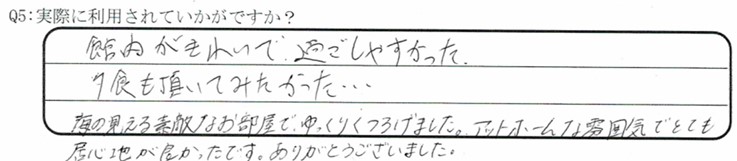 Q5:実際に利用されていかがですか？
館内がきれいで、過ごしやすかった.
夕食も頂いてみたかった・・・
海の見える素敵なお部屋で、ゆっくりくつろげました。アットホームな雰囲気でとても
居心地が良かったです。ありがとうございました。